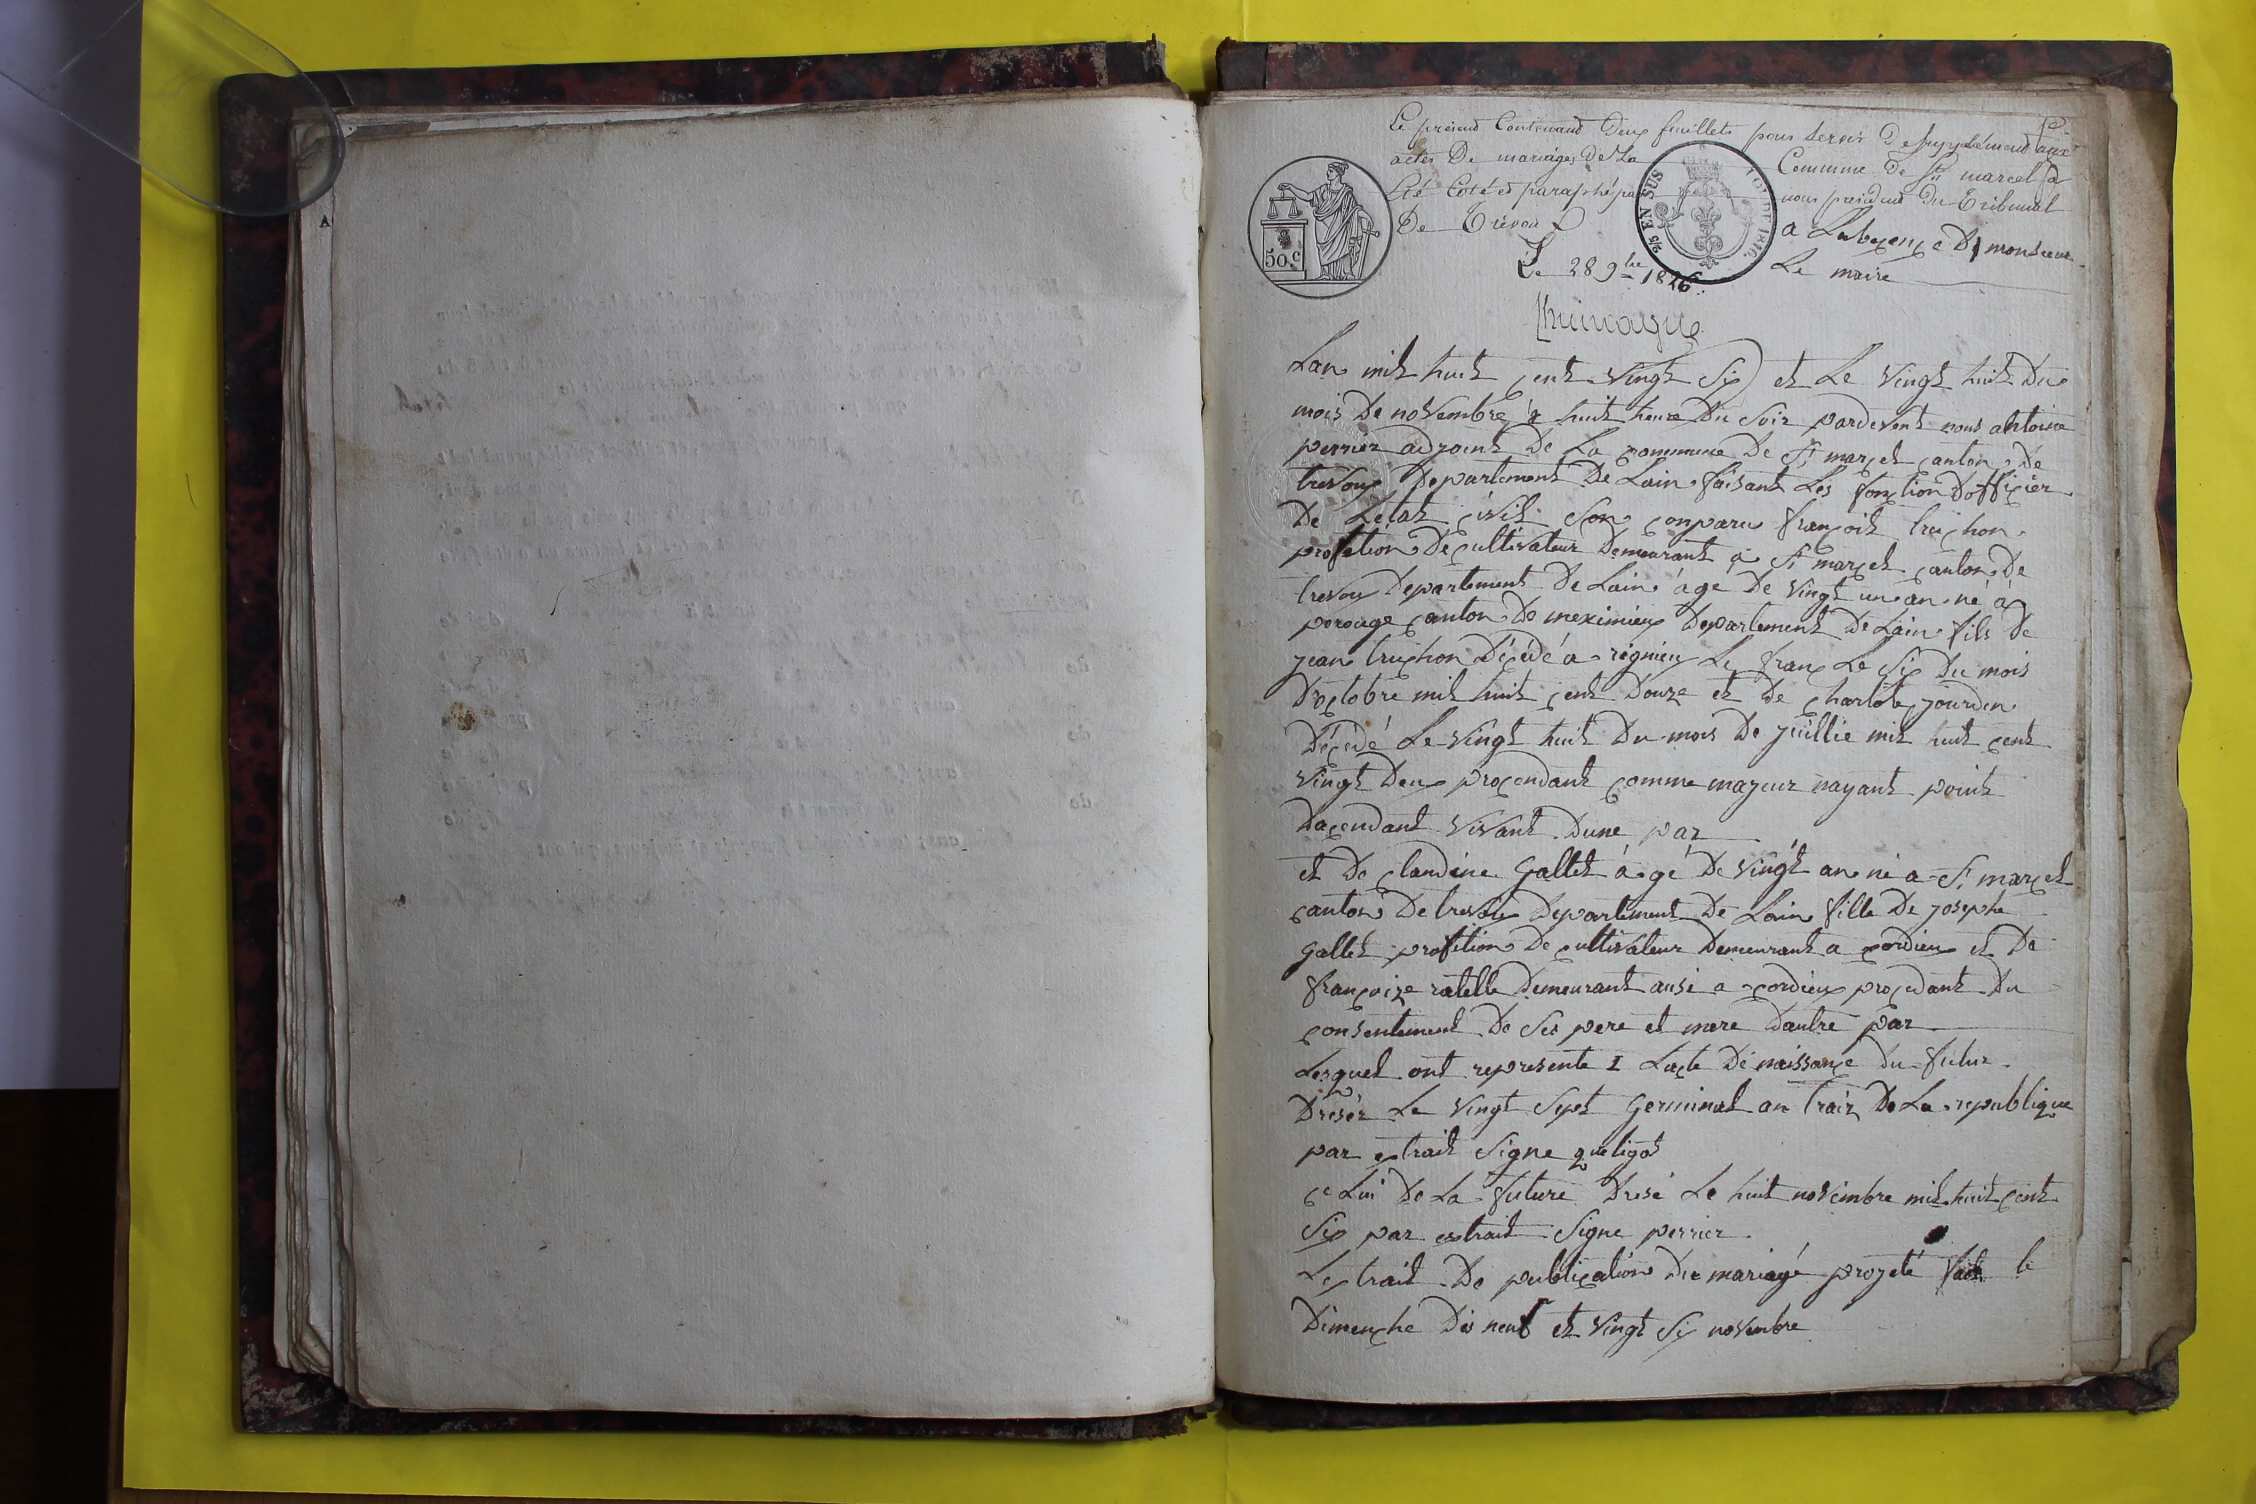 Le présent Contenand deux feuillets pour servir de supplémend aux
actes De mariages de La Commune de St marcel a
été Coté et paraphé par nous président du Tribunal
De Trévoux
a Labcence De monsieur
Le maire
Le 28 9bre 1826
50 c
2/5 EN SUS
LOI DE 1816
Lan mil huit cent vingt Six et Le vingt huit Du
mois De novembre a huit heure Du Soir pardevent nous antoine
perrier adjoint De La commune De St marcel canton De
trevoux Departement De Lain faisant Les fonction Dofficier
De Letat civil Son conparu françois truchon
profetion De cultivateur Demeurant a St marcel canton De
trevoux Departement De Lain age De vingt un an né a
perouge canton De meximieux Departement De Lain fils De
jean truchon Décédé a rignieu Le franc Le Six Du mois
Doctobre mil huit cent Douze et De charlote jourden
Décédé Le vingt huit Du mois De juillie mil huit cent
vingt Deux procendant comme majeur nayant point
Dacendant vivant Dune par
et De claudine Gallet agé De vingt an né a St marcel
canton De trevoux Departement De Lain fille De josephe
Gallet profetion De cultivateur Demeurant a cordieu et De
françoize ratelle Demeurant ausi a cordieux procedant Du
consentement De Ses pere et mere Dautre par
Lesquel ont represente 1 Lacte De naissance Du futur
Dresér Le vingt Sept Germinal an traiz De La republique
par extrait Signe queligot
celui De La future Dresé Le huit novembre mil huit cent
Six par extrait Signe perrier
Lextrait De publication Du mariage projeté fait le
Dimenche Dis neuf et vingt Six novembre